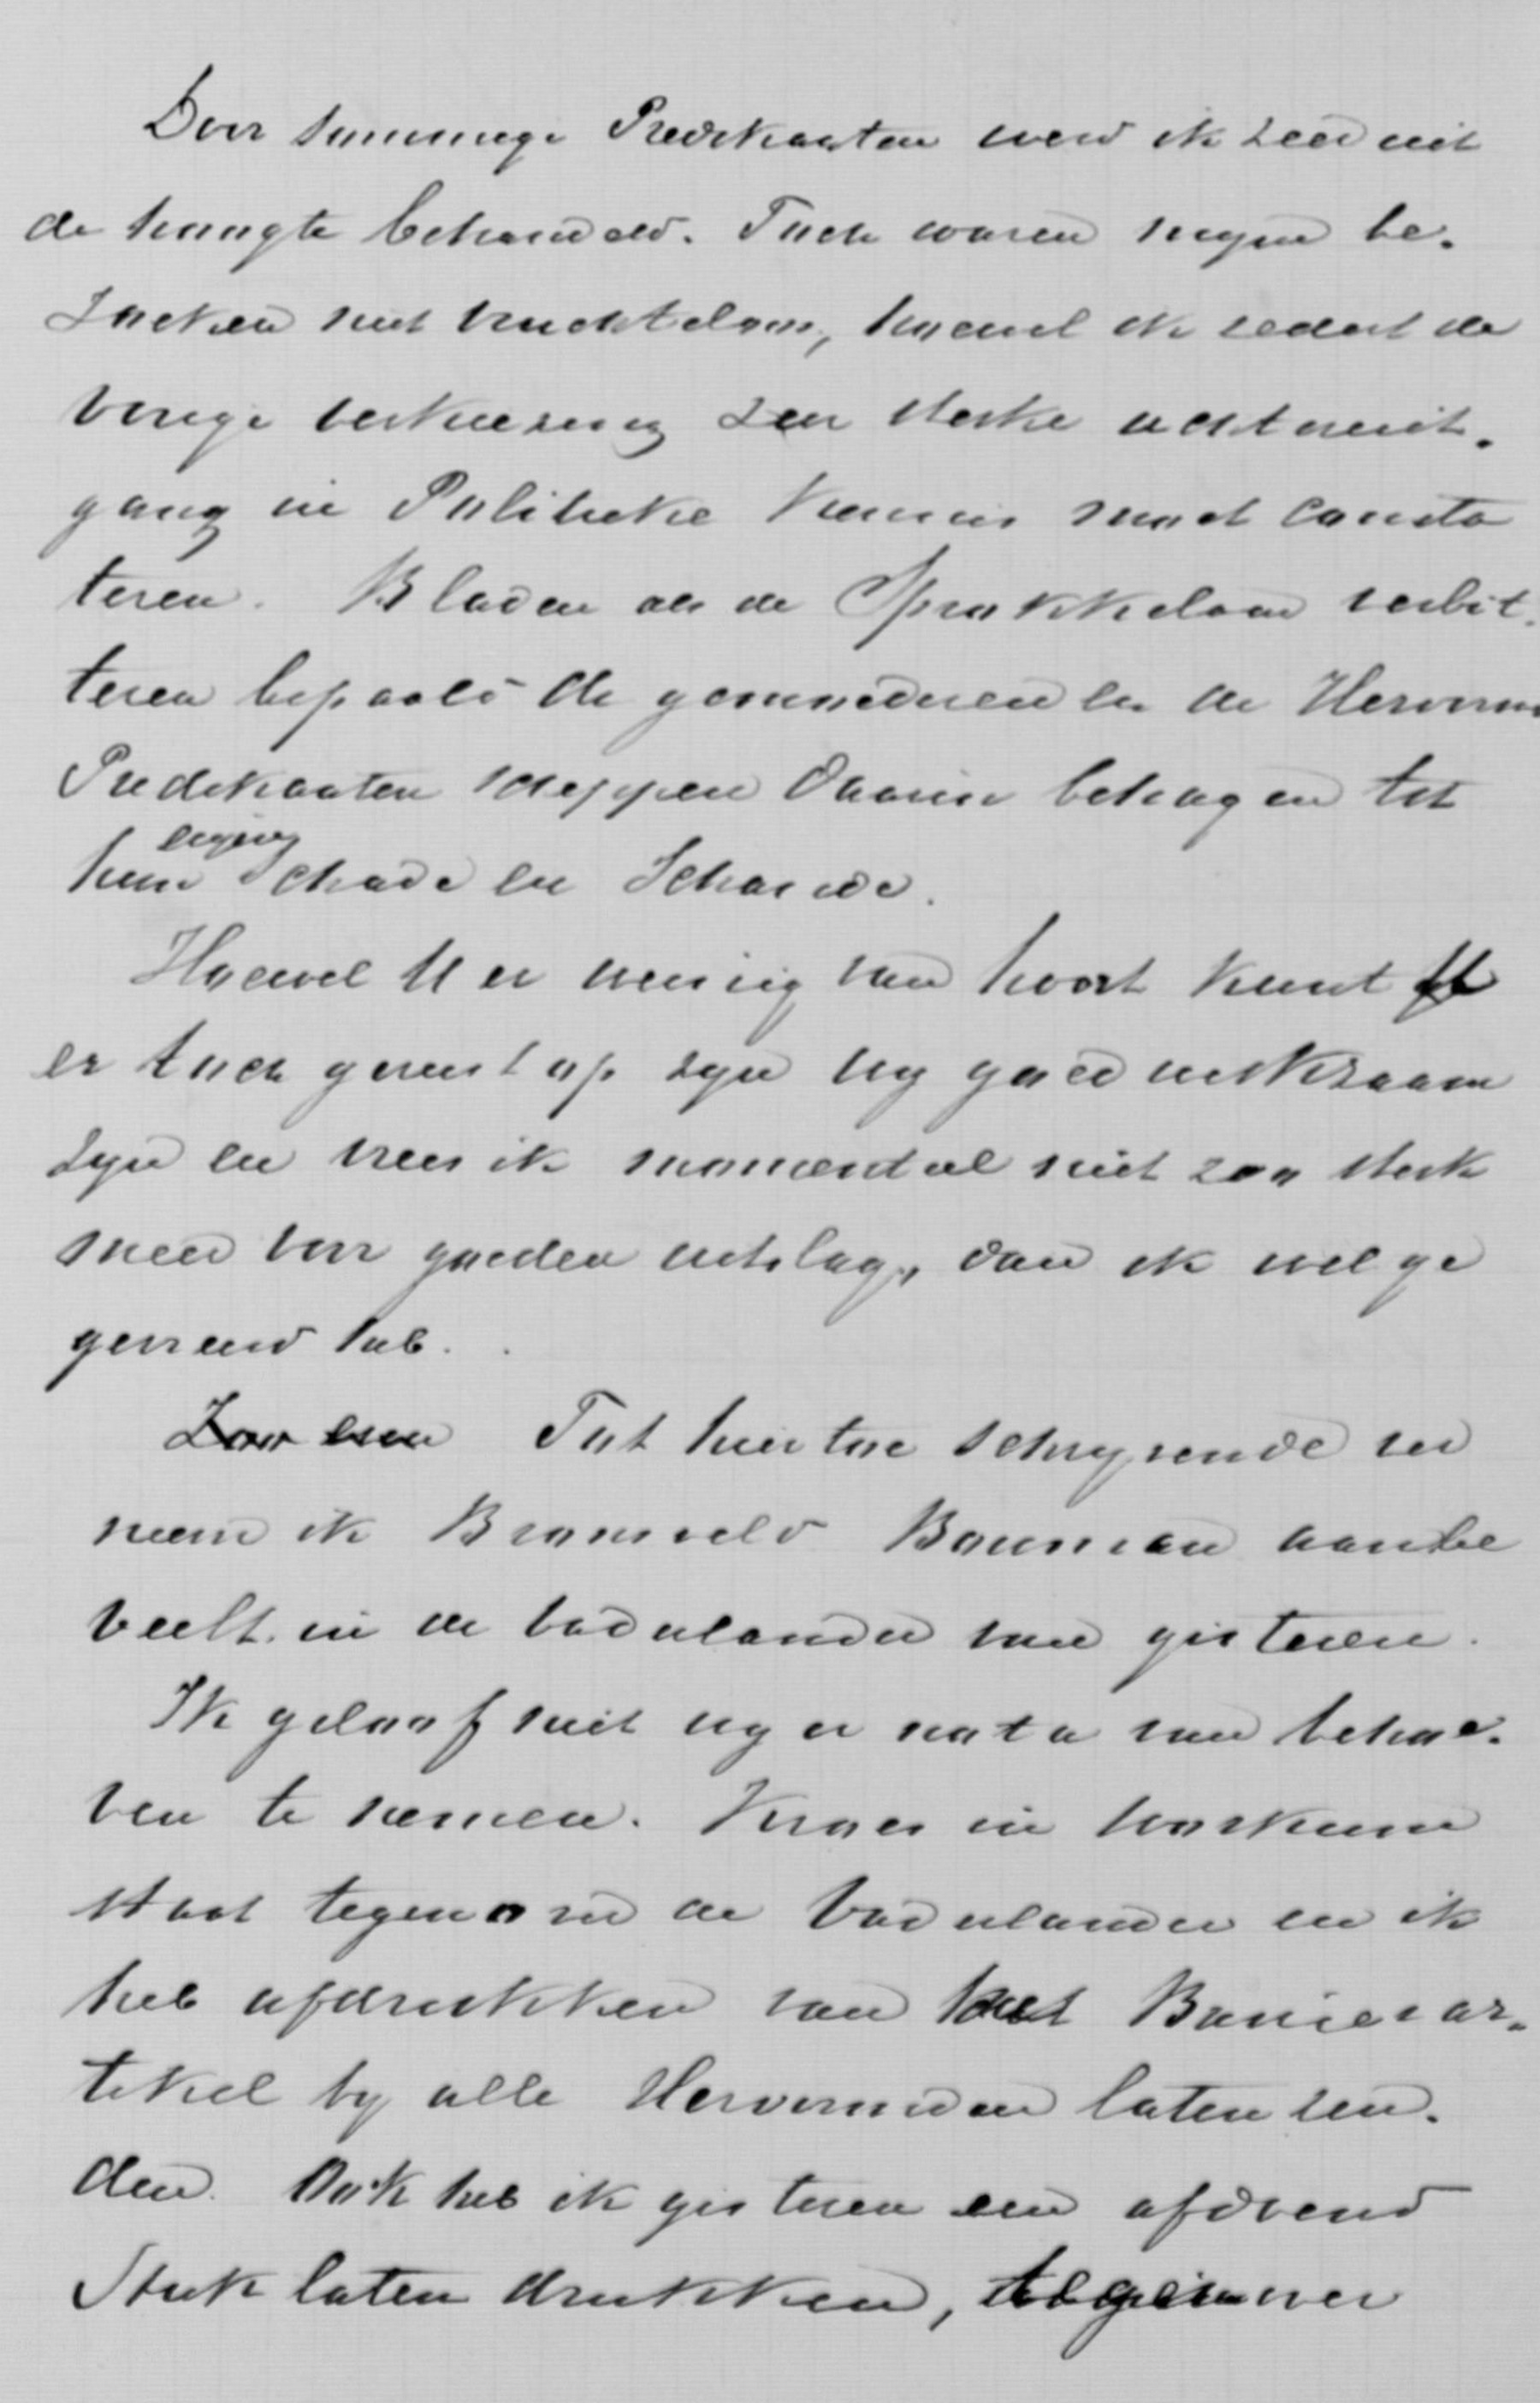 Door sommige Predikanten werd ik zeer uit
de hoogte behandeld. Toch waren mijne be-
zoeken niet vruchteloos, hoewel ik sedert de
vorige verkiezing zeer sterke achteruit-
gang in Politieke kennis moet consta
teren. Bladen als de Sprokkelaar verbit-
teren bepaald de gemoederen en de Hervormde
Predikanten scheppen daarin behagen tot
hun eigen schade en Schande.
Hoewel U er weinig van hoort kunt
er toch gerust op zijn wij goed werkzaam
zijn en vrees ik momenteel niet zoo sterk
meer voor goeden uitslag, dan ik wel ge
gevreesd heb.
Zoo even Tot hiertoe schrijvende ver
neem ik Bronsveld Bouman aanbe
veelt in de Vaderlander van gisteren.
Ik geloof niet wij er nota van behoe-
ven te nemen. Kroes in Workum
staat tegenover de Vaderlander en ik
heb afdrukken van het Banier ar-
tikel bij alle Hervormden laten zen-
den. Ook heb ik gisteren een afdoend
Stuk laten drukken,